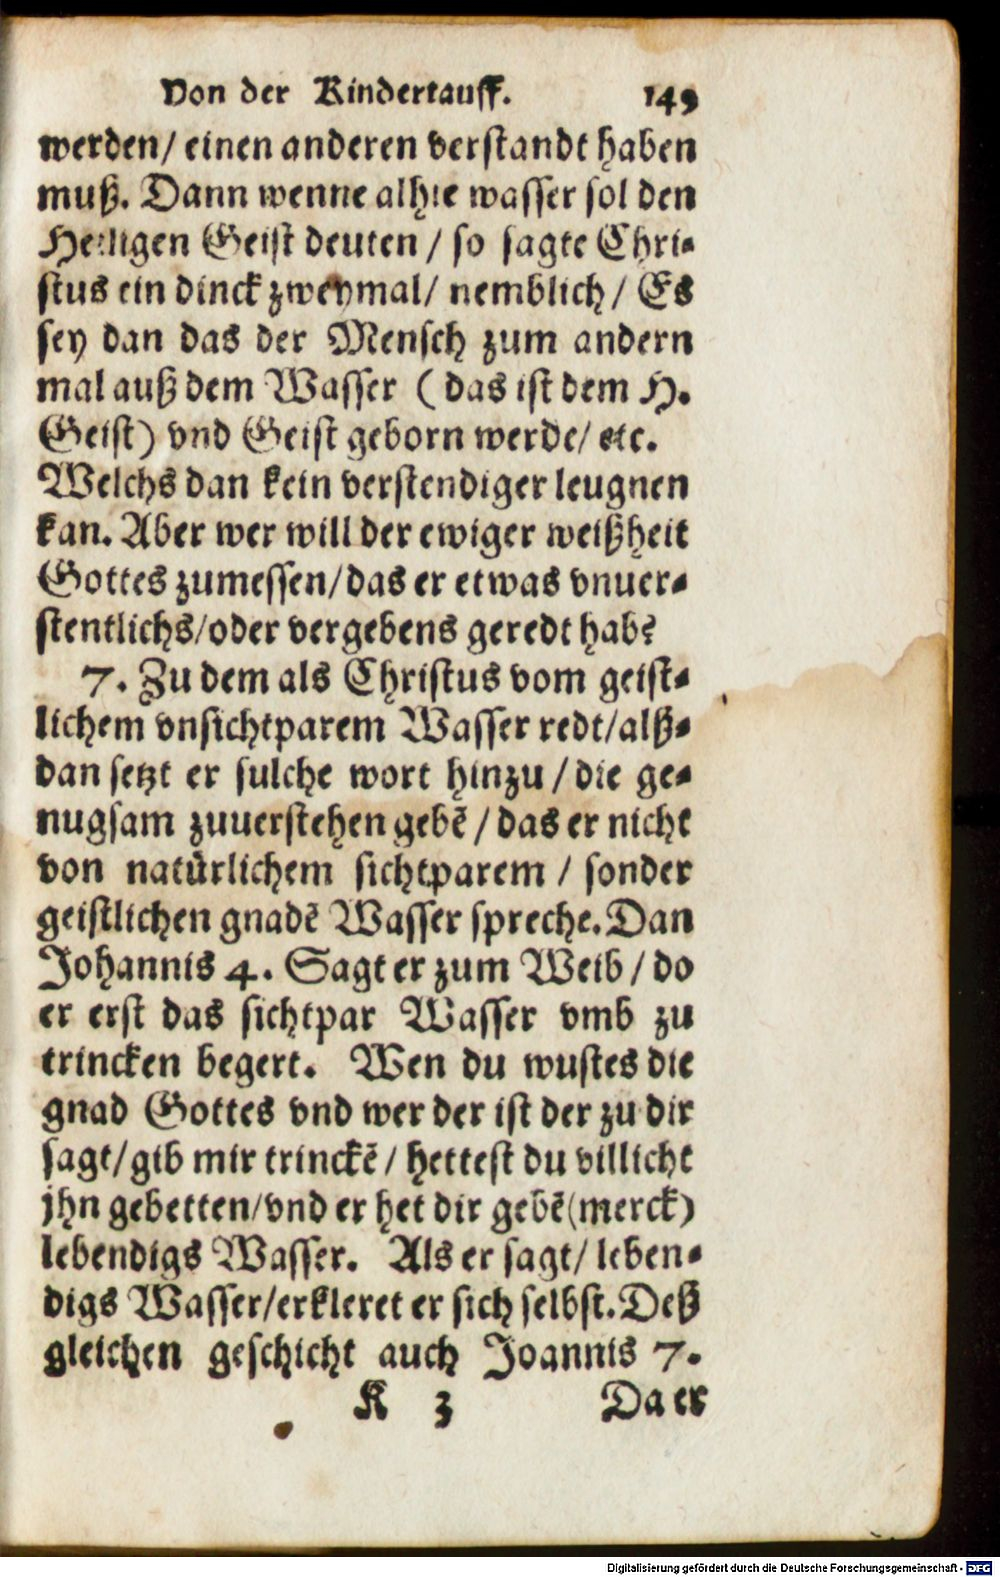 Von der Kindertauff. 149
werden/ einen anderen verstandt haben
muß. Dann wenne alhie wasser sol den
Heiligen Geist deuten / so sagte Chri-
stus ein dinck zweymal/ nemblich/ Es
sey dan das der Mensch zum andern
mal auß dem Wasser ( das ist dem H.
Geist) vnd Geist geborn werde/ etc.
Welchs dan kein verstendiger leugnen
kan. Aber wer will der ewiger weißheit
Gottes zumessen/das er etwas vnuer-
stentlichs/oder vergebens geredt hab?
7. Zu dem als Christus vom geist-
lichem vnsichtparem Wasser redt/alß-
dan setzt er sulche wort hinzu / die ge-
nugsam zuuerstehen gebẽ / das er nicht
von natürlichem sichtparem / sonder
geistlichen gnadẽ Wasser spreche. Dan
Johannis 4. Sagt er zum Weib / do
er erst das sichtpar Wasser vmb zu
trincken begert. Wen du wustes die
gnad Gottes vnd wer der ist der zu dir
sagt/gib mir trinckẽ / hettest du villicht
jhn gebetten/vnd er het dir gebẽ(merck)
lebendigs Wasser. Als er sagt/ leben-
digs Wasser/erkleret er sich selbst. Deß
gleichen geschicht auch Joannis 7.
K 3 Da er
Digitalisierung gefördert durch die Deutsche Forschungsgemeinschaft - DFG